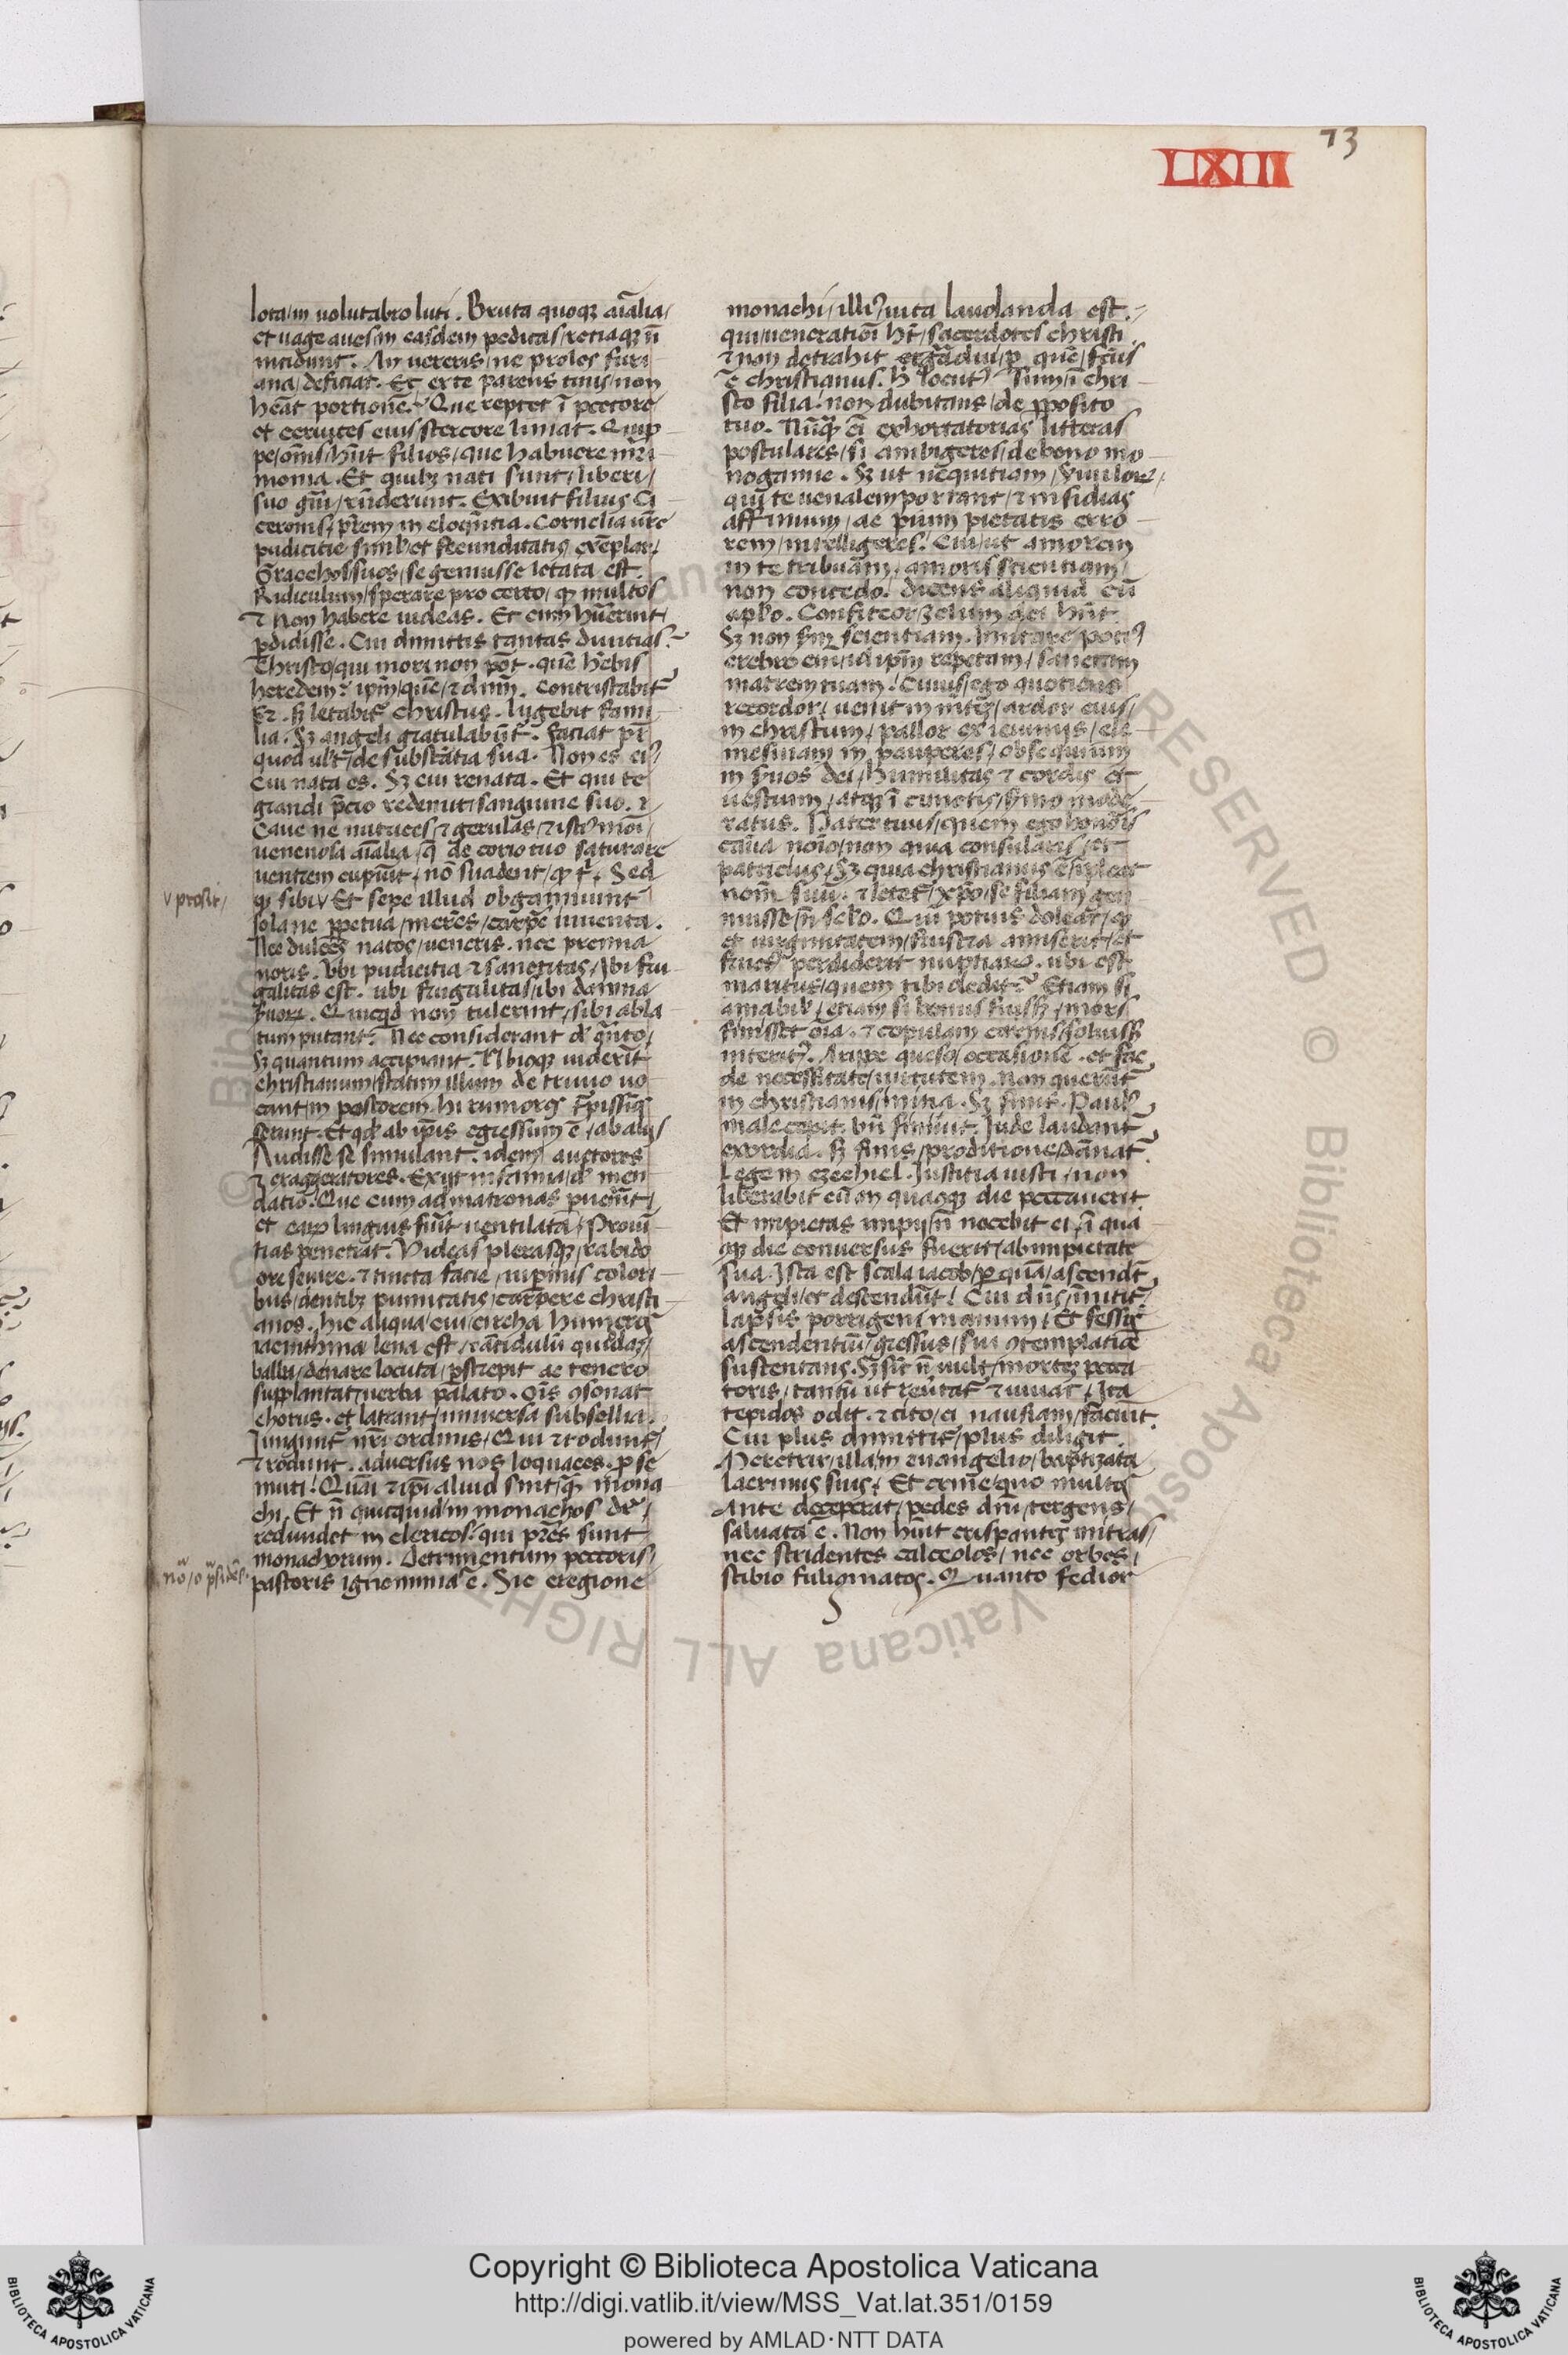 73
LXIII
lota/in uolutabro luti. Bruta quoqꝫ aīalia/
et uage aues/in easdem pedicas/retiaqꝫ n̄
incidunt. An uereris/ne proles furi
ana/deficiat. Et ex te parens tuus/non
heāt portionē? Que reptet ī pectore
et ceruices eius/stercore liniat. Quip
pe/om̄s/hn̄t filios/que habuere mr̄i
monia. Et quibꝫ nati sunt/liberi/
suo gn̄i/rn̄derunt. Exibuit filius Ci
ceronis/pr̄em in eloqn̄tia. Cornelia ur̄e
pudicitie simlˀ et fecunditatis exēplar/
Gracchos/suos/se genuisse letata est.
Ridiculum/sperare pro certo/qꝫ multos
⁊ Non habere uideas. Et cum hūerint/
ꝑdidisse. Cui dimittis tantas diuitias?
Christo/qui mori non pōt. quē hēbis
heredem? ip̄m/quē/⁊ dn̄m. Contristabit̄
pr̄. sꝫ letabit̄ Christus. lugebit fami
lia. Sꝫ angeli gratulabūt̄. faciat pr̄
quod ult̄/de substātia sua. Non es eiꝰ
cui nata es. Sꝫ cui renata. Et qui te
grandi p̄cio redemit/sanguine suo.
Caue ne nutrices/⁊ gerulas/⁊ istiꝰ mōi/
uenenosa aīalia/q̄ de corio tuo saturare
uentrem cupiūt/nō suadent/qꝫ t̄. Sed
v prosit/
qꝫ sibi v Et sepe illud obganniunt
solane ꝑpetua/merēs/carpē iuuenta.
Nec dulces natos/ueneris. nec premia
noris. Vbi pudicitia ⁊ sanctitas/ibi fru
galitas est. ubi frugalitas/ibi damna
suorꝝ. Quicqd̄ non tulerint/sibi abla
tum putant. Nec considerant dˀ qn̄to/
Sꝫ quantum accipiant. Vbicqꝫ uiderīt
christianum/statim illum de triuio uo
cant/in pastorem. hi rumores t̄pissīos
serunt. Et qd̄ ab ip̄is egressum ē/ab alijs
Audisse se simulant. idem/auctores
⁊ exaggeratores. Exijt inde fama/dˀ men
datio. Que cum ad matronas puenīt/
et earꝝ linguis fuīt uentilata/Prouī
tias penetrat. Videas plerasqꝫ/rabido
ore seuire. ⁊ tincta facie/uiperinis colori
bus/dentibꝫ pumicatis/carpere christi
anos. hic aliqua/cui/circha humeros
iacinthina lena est/rācidulū quiddaꝫ/
balba/denare locuta/ꝑstrepit ac tenero
supplantat/uerba palato. Oīs ꝯsonat
chorus. et latrant/uniuersa subsellia.
Jungunt̄ nr̄i ordinis/Qui ⁊ rodunt̄/
⁊ rodunt. adversus nos loquaces. ꝓ se
muti! Quasi ⁊ ip̄i aliud sint/q̄ꝫ mona
chi. Et n̄ quicquid/in monachos dr̄/
redundet in clericos? qui pr̄es sunt
monachorum. Detrimentum pectoris/
nō/o psides.
pastoris ignominia ē. Sic e regione
monachi/illiꝰ/uita laudanda est.
qui/uenerationī ht̄/sacerdotes christi
⁊ non detrahit grādui/ꝑ quē/fc̄us
ē christianus. h̄ locutꝰ sum/ī chri
sto filia! non dubitans/de ꝓposito
tuo. Nūqꝫ eī exhortatorias litteras
postulares/si ambigeres/de bono mo
nogamie. Sꝫ ut nequitiam/ẜuulorꝝ/
qui te uenalem portant/⁊ insidias
affinium/ac pium pietatis erro
rem/intelligeres! Cui/ut amorem
in te tribuam/amoris scientiam/
non concedo! dicens aliquid cū
aplˀo. Confiteor/zelum dei hn̄t
Sꝫ non sꝫm scientiam. Imitare potiꝰ
crebro eni/id ip̄m repetam/sanctam
matrem tuam! Cuius/ego quotiens
recordor/uenit in mn̄teꝫ/ardor eius/
in christum/pallor ex ieiunijs/ele
mosinam in pauperes/obsequium
in ẜuos dei/humilitas ⁊ cordis et
uestium/atqꝫ ī cunctis/ẜmo mode
ratus. Pater tuus/quem ego honoris
causa noīo/non quia consularis/et
patricius/Sꝫ quia christianus ē/ipleat
nom̄ suū. ⁊ letet̄/xp̄o/se filiam gen
nuisse/n̄ sclˀo. Quī potius doleat/qꝫ
et uirginitatem/frustra amiserit/et
fructꝰ perdiderit nuptiarꝝ. ubi est
maritus/quem tibi dedit? Etiam si
amabilˀ/etiam si bonus fuissꝫ/mors
finisset oīa. ⁊ copulam carnis/soluissꝫ
interitꝰ. Arripe queso/occasionē. et fac
de necessitate/uirtutem. Non querūt̄
in christianis/initia. Sꝫ finis. Paulˀ
male cepit. bn̄ finiuit. Jude laudant̄
exordia. sꝫ finis/proditione/dānat̄.
Lege in ezechiel. Justitia iusti/non
liberabit eū in quacqꝫ die peccauerit.
Et impietas impij/n̄ nocebit ei/ī qua
qꝫ die conuersus fuerit/ab impietate
sua. Ista est scala iacob/ꝑ quā/ascendūt
angeli/et descendūt! Cui dn̄s/īnitit̄
lapsis porrigens manum/Et fessos
ascendentiū/gressus/sui ꝯtemplatiōe
sustentans. Sꝫ sic̄ n̄ uult/morteꝫ pecca
toris/tantū ut reūtat̄ ⁊ uiuat/Ita
tepidos odit. ⁊ cito/ei nausiam/faciūt.
Cui plus dimittit̄/plus diligit.
Meretrix/illa/in euangelio/baptizata
lacrimis suis/Et crine/quo multos
Ante deceperat/pedes dn̄i/tergens/
saluata ē. Non hūit crispantes mitras/
nec stridentes calceolos/nec orbes/
stibio fuliginatos. Quanto fedior
Copyright © Biblioteca Apostolica Vaticana
http://digi.vatlib.it/view/MSS_Vat.lat.351/0159
powered by AMLAD·NTT DATA